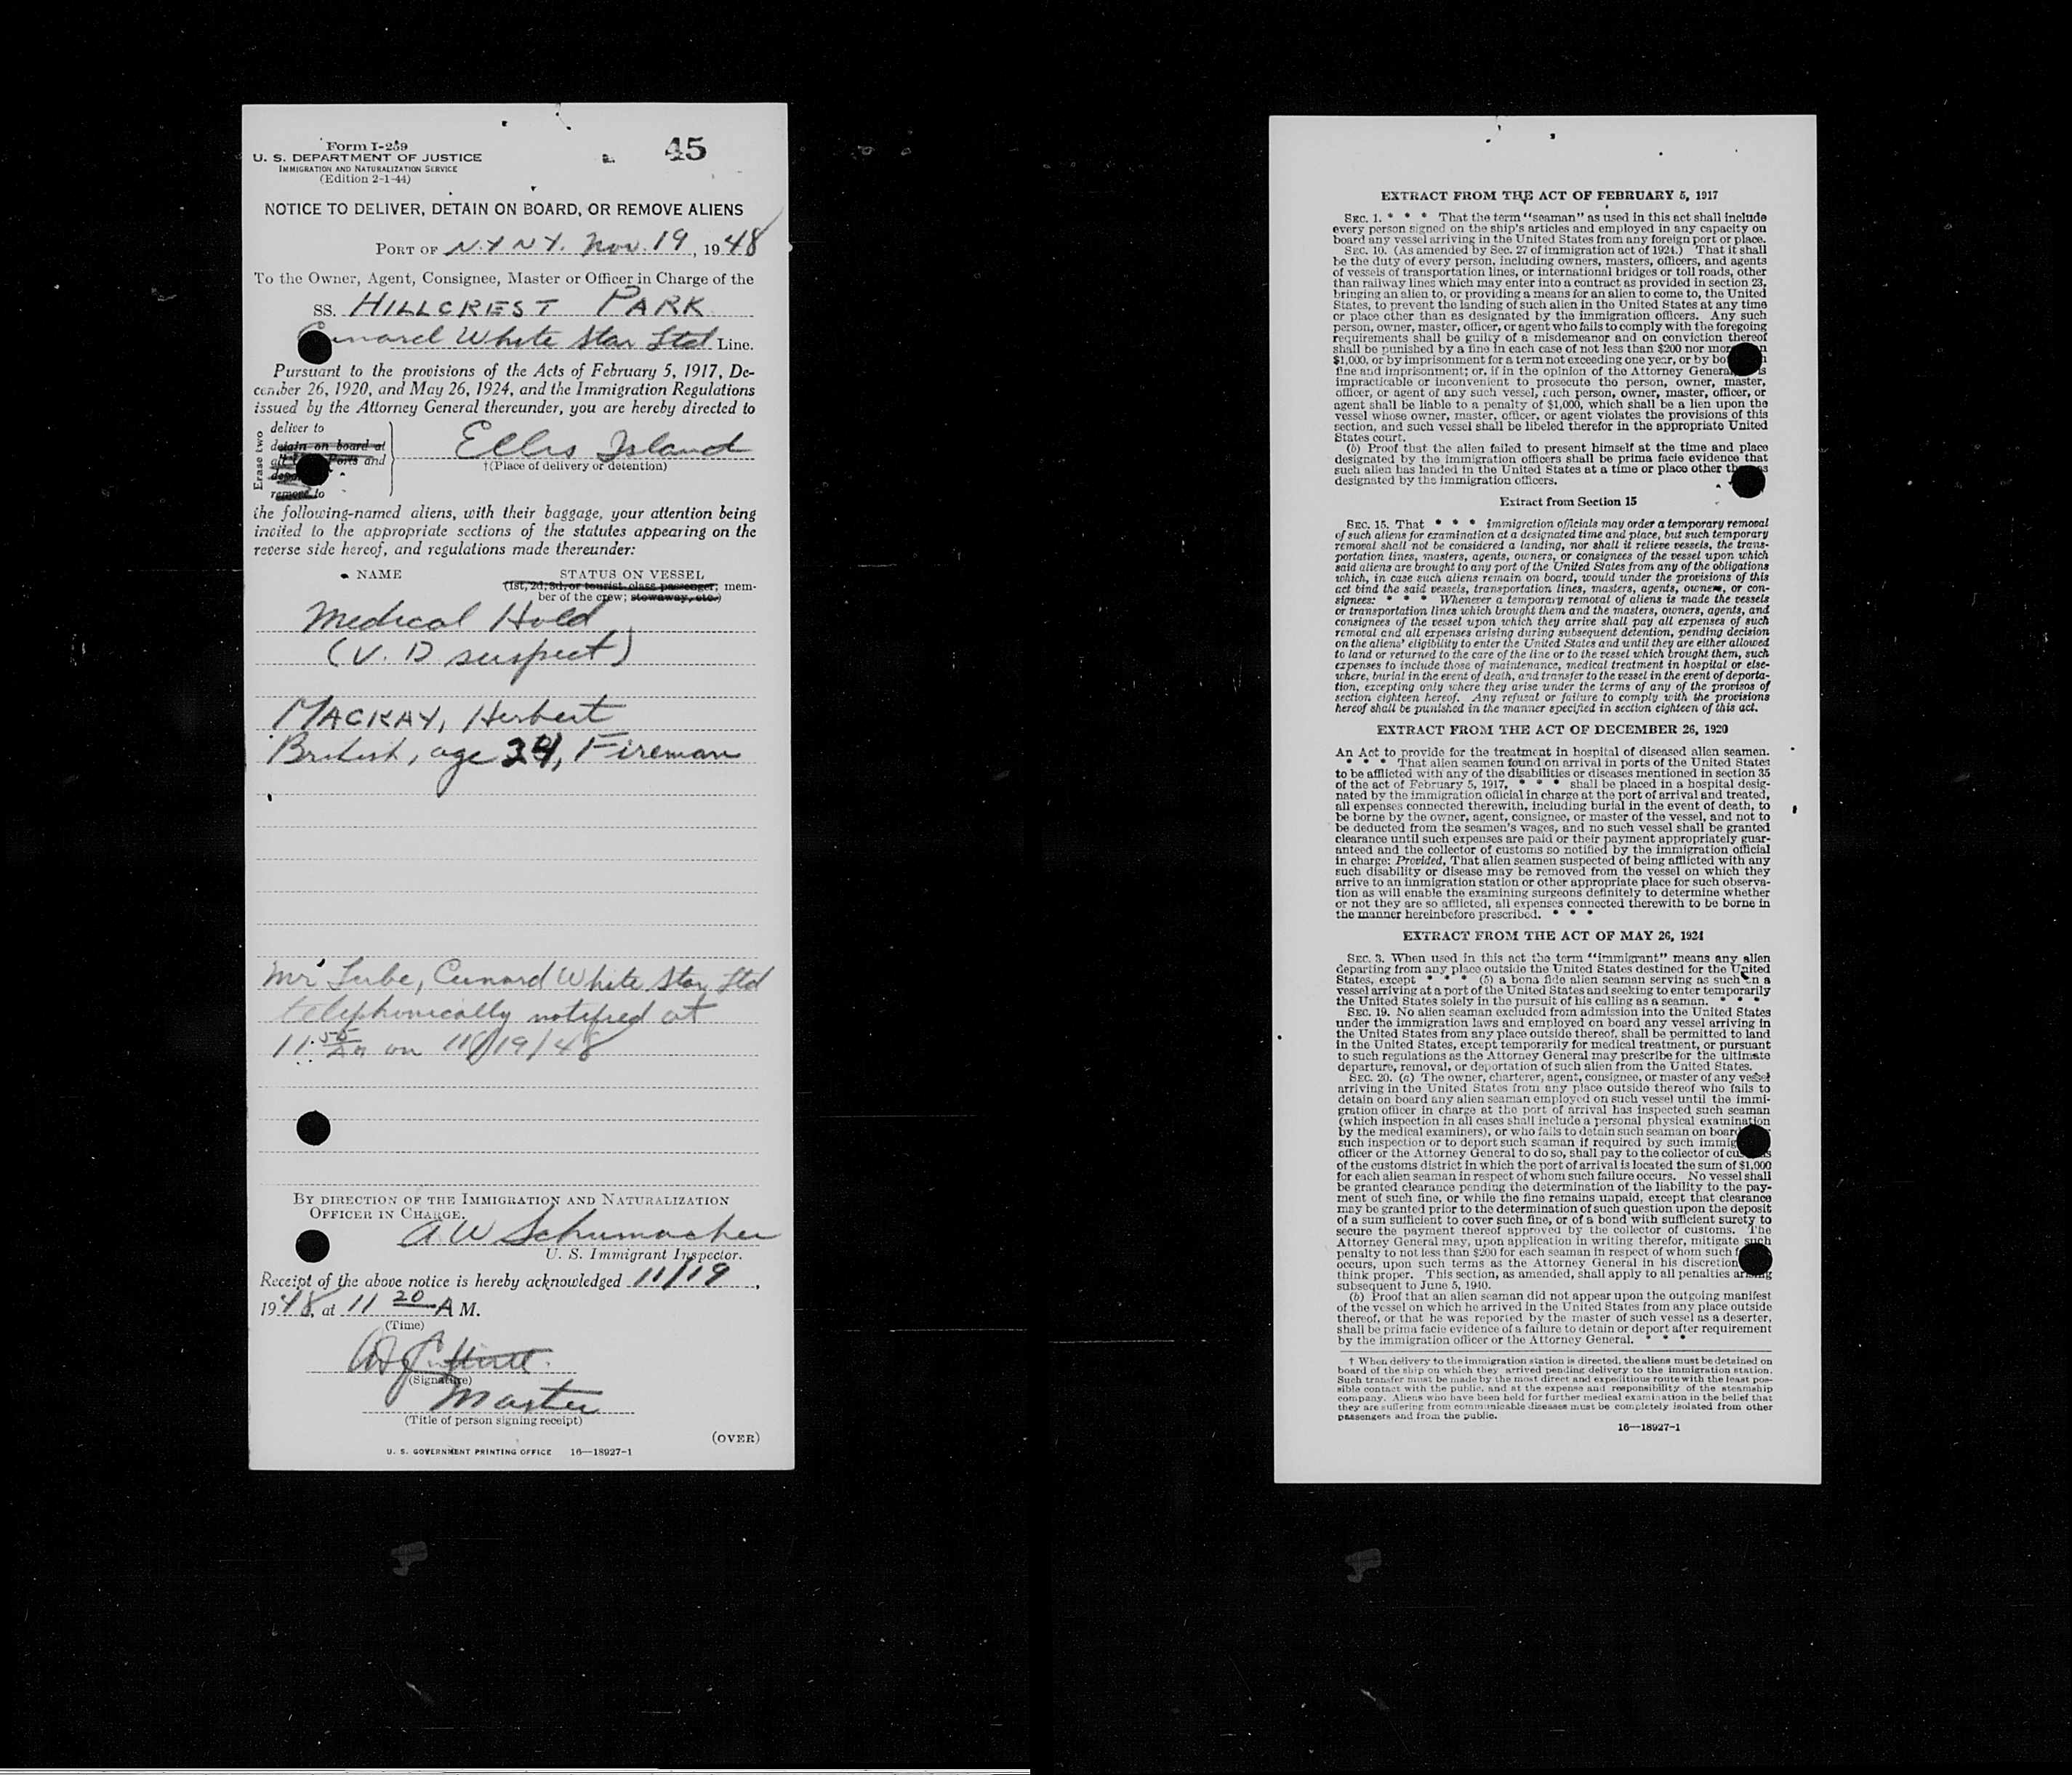 Form I-259
U. S. DEPARTMENT OF JUSTICE
IMMIGRATION AND NATURALIZATION SERVICE
(Edition 2-1-44)
45
NOTICE TO DELIVER, DETAIN ON BOARD, OR REMOVE ALIENS
PORT OF N.Y N.Y. Nov. 19, 1948
To the Owner, Agent, Consignee, Master or Officer in Charge of the
SS. HILLCREST PARK
Cunard White Star Ltd Line.
Pursuant to the provisions of the Acts of February 5, 1917, De-
cember 26, 1920, and May 26, 1924, and the Immigration Regulations
issued by the Attorney General thereunder, you are hereby directed to
Erase two
deliver to
detain on board at
Ports and
remove to
Ellis Island
†(Place of delivery or detention)
the following-named aliens, with their baggage, your attention being
invited to the appropriate sections of the statutes appearing on the
reverse side hereof, and regulations made thereunder:
NAME STATUS ON VESSEL
(1st, 2d, 3d, or tourist class passenger; mem-
ber of the crew; stowaway, etc.)
Medical Hold
(V. D suspect)
MACKAY, Herbert
British, age Fireman
Mr Cunard White Star Ltd
telephonically notified at
11:50 on 11/19/48
BY DIRECTION OF THE IMMIGRATION AND NATURALIZATION
OFFICER IN CHARGE.
A W Schumacher
U. S. Immigrant Inspector.
Receipt of the above notice is hereby acknowledged 11/19,
1948, at 11 20 A M.
(Time)
(Signature)
Master
(Title of person signing receipt)
(OVER)
U. S. GOVERNMENT PRINTING OFFICE 16—18927-1
EXTRACT FROM THE ACT OF FEBRUARY 5, 1917
SEC. 1. * * * That the term "seaman" as used in this act shall include
every person signed on the ship's articles and employed in any capacity on
board any vessel arriving in the United States from any foreign port or place.
SEC. 10. (As amended by Sec. 27 of immigration act of 1924.) That it shall
be the duty of every person, including owners, masters, officers, and agents
of vessels of transportation lines, or international bridges or toll roads, other
than railway lines which may enter into a contract as provided in section 23,
bringing an alien to, or providing a means for an alien to come to, the United
States, to prevent the landing of such alien in the United States at any time
or place other than as designated by the immigration officers. Any such
person, owner, master, officer, or agent who fails to comply with the foregoing
requirements shall be guilty of a misdemeanor and on conviction thereof
shall be punished by a fine in each case of not less than $200 nor more than
$1,000, or by imprisonment for a term not exceeding one year, or by both such
fine and imprisonment; or, if in the opinion of the Attorney General it is
impracticable or inconvenient to prosecute the person, owner, master,
officer, or agent of any such vessel, such person, owner, master, officer, or
agent shall be liable to a penalty of $1,000, which shall be a lien upon the
vessel whose owner, master, officer, or agent violates the provisions of this
section, and such vessel shall be libeled therefor in the appropriate United
States court.
(b) Proof that the alien failed to present himself at the time and place
designated by the immigration officers shall be prima facie evidence that
such alien has landed in the United States at a time or place other than as
designated by the immigration officers.
Extract from Section 15
SEC. 15. That * * * immigration officials may order a temporary removal
of such aliens for examination at a designated time and place, but such temporary
removal shall not be considered a landing, nor shall it relieve vessels, the trans-
portation lines, masters, agents, owners, or consignees of the vessel upon which
said aliens are brought to any port of the United States from any of the obligations
which, in case such aliens remain on board, would under the provisions of this
act bind the said vessels, transportation lines, masters, agents, owners, or con-
signees: * * * Whenever a temporary removal of aliens is made the vessels
or transportation lines which brought them and the masters, owners, agents, and
consignees of the vessel upon which they arrive shall pay all expenses of such
removal and all expenses arising during subsequent detention, pending decision
on the aliens' eligibility to enter the United States and until they are either allowed
to land or returned to the care of the line or to the vessel which brought them, such
expenses to include those of maintenance, medical treatment in hospital or else-
where, burial in the event of death, and transfer to the vessel in the event of deporta-
tion, excepting only where they arise under the terms of any of the provisos of
section eighteen hereof. Any refusal or failure to comply with the provisions
hereof shall be punished in the manner specified in section eighteen of this act.
EXTRACT FROM THE ACT OF DECEMBER 26, 1920
An Act to provide for the treatment in hospital of diseased alien seamen.
* * * That alien seamen found on arrival in ports of the United States
to be afflicted with any of the disabilities or diseases mentioned in section 35
of the act of February 5, 1917, * * * shall be placed in a hospital desig-
nated by the immigration official in charge at the port of arrival and treated,
all expenses connected therewith, including burial in the event of death, to
be borne by the owner, agent, consignee, or master of the vessel, and not to
be deducted from the seamen's wages, and no such vessel shall be granted
clearance until such expenses are paid or their payment appropriately guar-
anteed and the collector of customs so notified by the immigration official
in charge: Provided, That alien seamen suspected of being afflicted with any
such disability or disease may be removed from the vessel on which they
arrive to an immigration station or other appropriate place for such observa-
tion as will enable the examining surgeons definitely to determine whether
or not they are so afflicted, all expenses connected therewith to be borne in
the manner hereinbefore prescribed. * * *
EXTRACT FROM THE ACT OF MAY 26, 1924
SEC. 3. When used in this act the term "immigrant" means any alien
departing from any place outside the United States destined for the United
States, except * * * (5) a bona fide alien seaman serving as such on a
vessel arriving at a port of the United States and seeking to enter temporarily
the United States solely in the pursuit of his calling as a seaman. * * *
SEC. 19. No alien seaman excluded from admission into the United States
under the immigration laws and employed on board any vessel arriving in
the United States from any place outside thereof, shall be permitted to land
in the United States, except temporarily for medical treatment, or pursuant
to such regulations as the Attorney General may prescribe for the ultimate
departure, removal, or deportation of such alien from the United States.
SEC. 20. (a) The owner, charterer, agent, consignee, or master of any vessel
arriving in the United States from any place outside thereof who fails to
detain on board any alien seaman employed on such vessel until the immi-
gration officer in charge at the port of arrival has inspected such seaman
(which inspection in all cases shall include a personal physical examination
by the medical examiners), or who fails to detain such seaman on board
such inspection or to deport such seaman if required by such immig
officer or the Attorney General to do so, shall pay to the collector of customs
of the customs district in which the port of arrival is located the sum of $1,000
for each alien seaman in respect of whom such failure occurs. No vessel shall
be granted clearance pending the determination of the liability to the pay-
ment of such fine, or while the fine remains unpaid, except that clearance
may be granted prior to the determination of such question upon the deposit
of a sum sufficient to cover such fine, or of a bond with sufficient surety to
secure the payment thereof approved by the collector of customs. The
Attorney General may, upon application in writing therefor, mitigate such
penalty to not less than $200 for each seaman in respect of whom such f
occurs, upon such terms as the Attorney General in his discretion
think proper. This section, as amended, shall apply to all penalties arising
subsequent to June 5, 1940.
(b) Proof that an alien seaman did not appear upon the outgoing manifest
of the vessel on which he arrived in the United States from any place outside
thereof, or that he was reported by the master of such vessel as a deserter,
shall be prima facie evidence of a failure to detain or deport after requirement
by the immigration officer or the Attorney General. * * *
† When delivery to the immigration station is directed, the aliens must be detained on
board of the ship on which they arrived pending delivery to the immigration station.
Such transfer must be made by the most direct and expeditious route with the least pos-
sible contact with the public, and at the expense and responsibility of the steamship
company. Aliens who have been held for further medical examination in the belief that
they are suffering from communicable diseases must be completely isolated from other
passengers and from the public.
16—18927-1